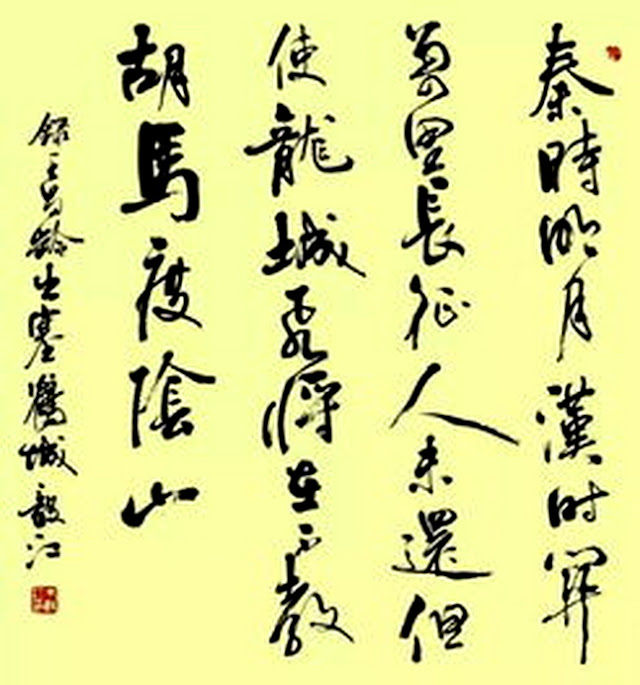 秦時明月漢时関
萬里長征人未還但
使龍城飛将在不教
胡馬度陰山
録王昌齡出塞鶴城毅江